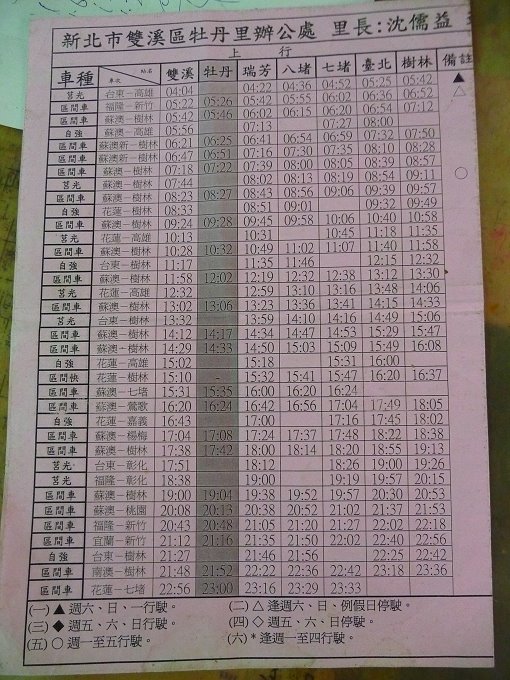 新北市雙溪區牡丹里辦公處 里長:沈儒益
上 行
車種 車次 站名 雙溪 牡丹 瑞芳 八堵 七堵 臺北 樹林 備註
莒光 台東－高雄 04:04 04:22 04:36 04:52 05:25 05:42 ▲
區間車 福隆－新竹 05:22 05:26 05:42 05:55 06:02 06:36 06:52 △
區間車 蘇澳－樹林 05:42 05:46 06:02 06:15 06:20 06:54 07:12
自強 蘇澳－高雄 05:56 07:13 07:27 08:00
區間車 蘇澳新－樹林 06:21 06:25 06:41 06:54 06:59 07:32 07:50
區間車 蘇澳新－樹林 06:47 06:51 07:16 07:30 07:35 08:10 08:28
區間車 蘇澳－樹林 07:18 07:22 07:39 08:00 08:05 08:39 08:57
莒光 蘇澳－樹林 07:44 08:02 08:13 08:19 08:54 09:11 ○
區間車 蘇澳－樹林 08:23 08:27 08:43 08:56 09:06 09:39 09:57
自強 花蓮－樹林 08:33 08:51 09:01 09:32 09:49
區間車 蘇澳－樹林 09:24 09:28 09:45 09:58 10:06 10:40 10:58
莒光 花蓮－高雄 10:13 10:31 10:45 11:18 11:35
區間車 蘇澳－樹林 10:28 10:32 10:49 11:02 11:07 11:40 11:58
自強 台東－樹林 11:17 11:35 11:46 12:15 12:32
區間車 蘇澳－樹林 11:58 12:02 12:19 12:32 12:38 13:12 13:30
莒光 花蓮－高雄 12:32 12:59 13:10 13:16 13:48 14:06
區間車 蘇澳－樹林 13:02 13:06 13:23 13:36 13:41 14:15 14:33
莒光 台東－樹林 13:32 13:59 14:10 14:16 14:49 15:06
區間車 蘇澳－樹林 14:12 14:17 14:34 14:47 14:53 15:29 15:47
區間車 蘇澳－樹林 14:29 14:33 14:50 15:03 15:09 15:49 16:08
自強 花蓮－高雄 15:02 15:18 15:31 16:00
區間快 花蓮－樹林 15:10 - 15:32 15:41 15:47 16:20 16:37
區間車 蘇澳－七堵 15:31 15:35 16:00 16:20 16:24
區間車 蘇澳－鶯歌 16:20 16:24 16:42 16:56 17:04 17:49 18:05
自強 花蓮－嘉義 16:43 17:00 17:16 17:45 18:02
區間車 蘇澳－楊梅 17:04 17:08 17:24 17:37 17:48 18:22 18:38
區間車 蘇澳－樹林 17:38 17:42 18:00 18:14 18:20 18:55 19:13
莒光 台東－彰化 17:51 18:12 18:26 19:00 19:26
莒光 福隆－彰化 18:38 19:00 19:19 19:57 20:15
區間車 蘇澳－樹林 19:00 19:04 19:38 19:52 19:57 20:30 20:53
區間車 蘇澳－桃園 20:08 20:13 20:38 20:52 21:02 21:37 21:53
區間車 福隆－新竹 20:43 20:48 21:05 21:20 21:27 22:02 22:18
區間車 宜蘭－新竹 21:12 21:16 21:35 21:50 22:02 22:40 22:56
自強 台東－樹林 21:27 21:46 21:56 22:25 22:42
區間車 南澳－樹林 21:48 21:52 22:22 22:36 22:42 23:18 23:36
區間車 花蓮－七堵 22:56 23:00 23:16 23:29 23:33
(一) ▲ 週六、日、一行駛。 (二) △ 逢週六、日、例假日停駛。
(三) ◆ 週五、六、日行駛。 (四) ◇ 週五、六、日停駛。
(五) ○ 週一至五行駛。 (六) * 逢週一至四行駛。